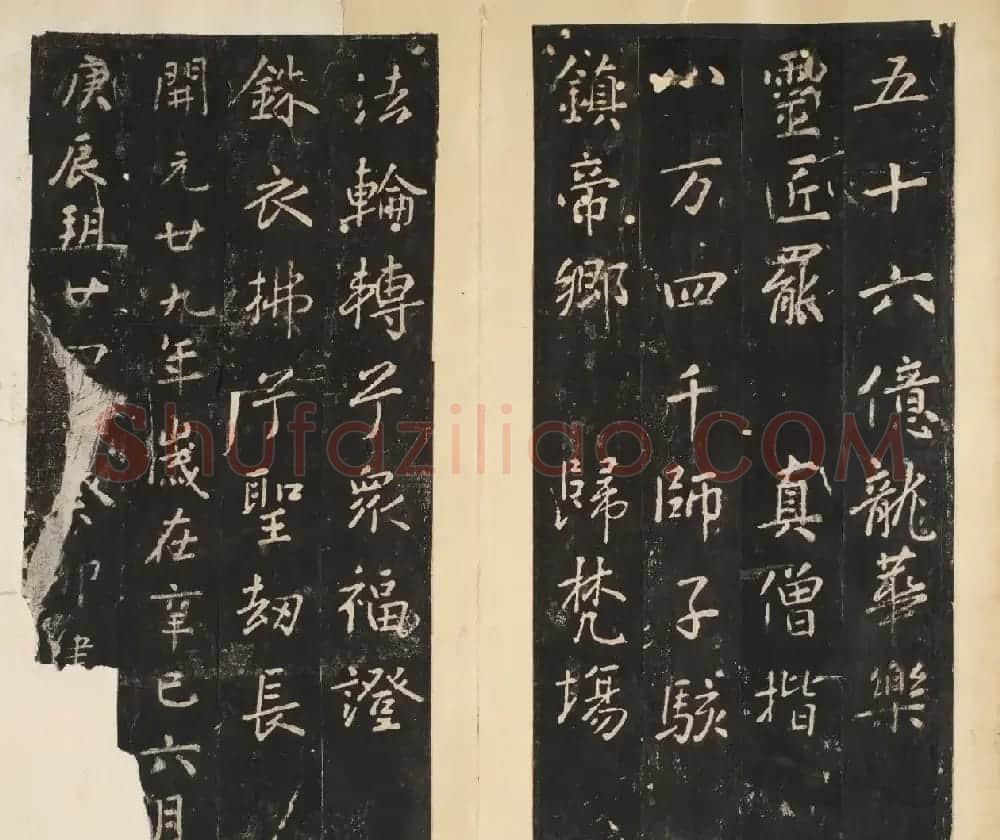 五十六億龍華樂
靈匠罷 真僧揩
八万四千師子駭
鎮帝鄉 歸梵場
法輪轉兮衆福證
銖衣拂兮聖劫長
開元廿九年歲在辛巳六月
庚辰朔廿四癸卯建
Shufaziliao.COM